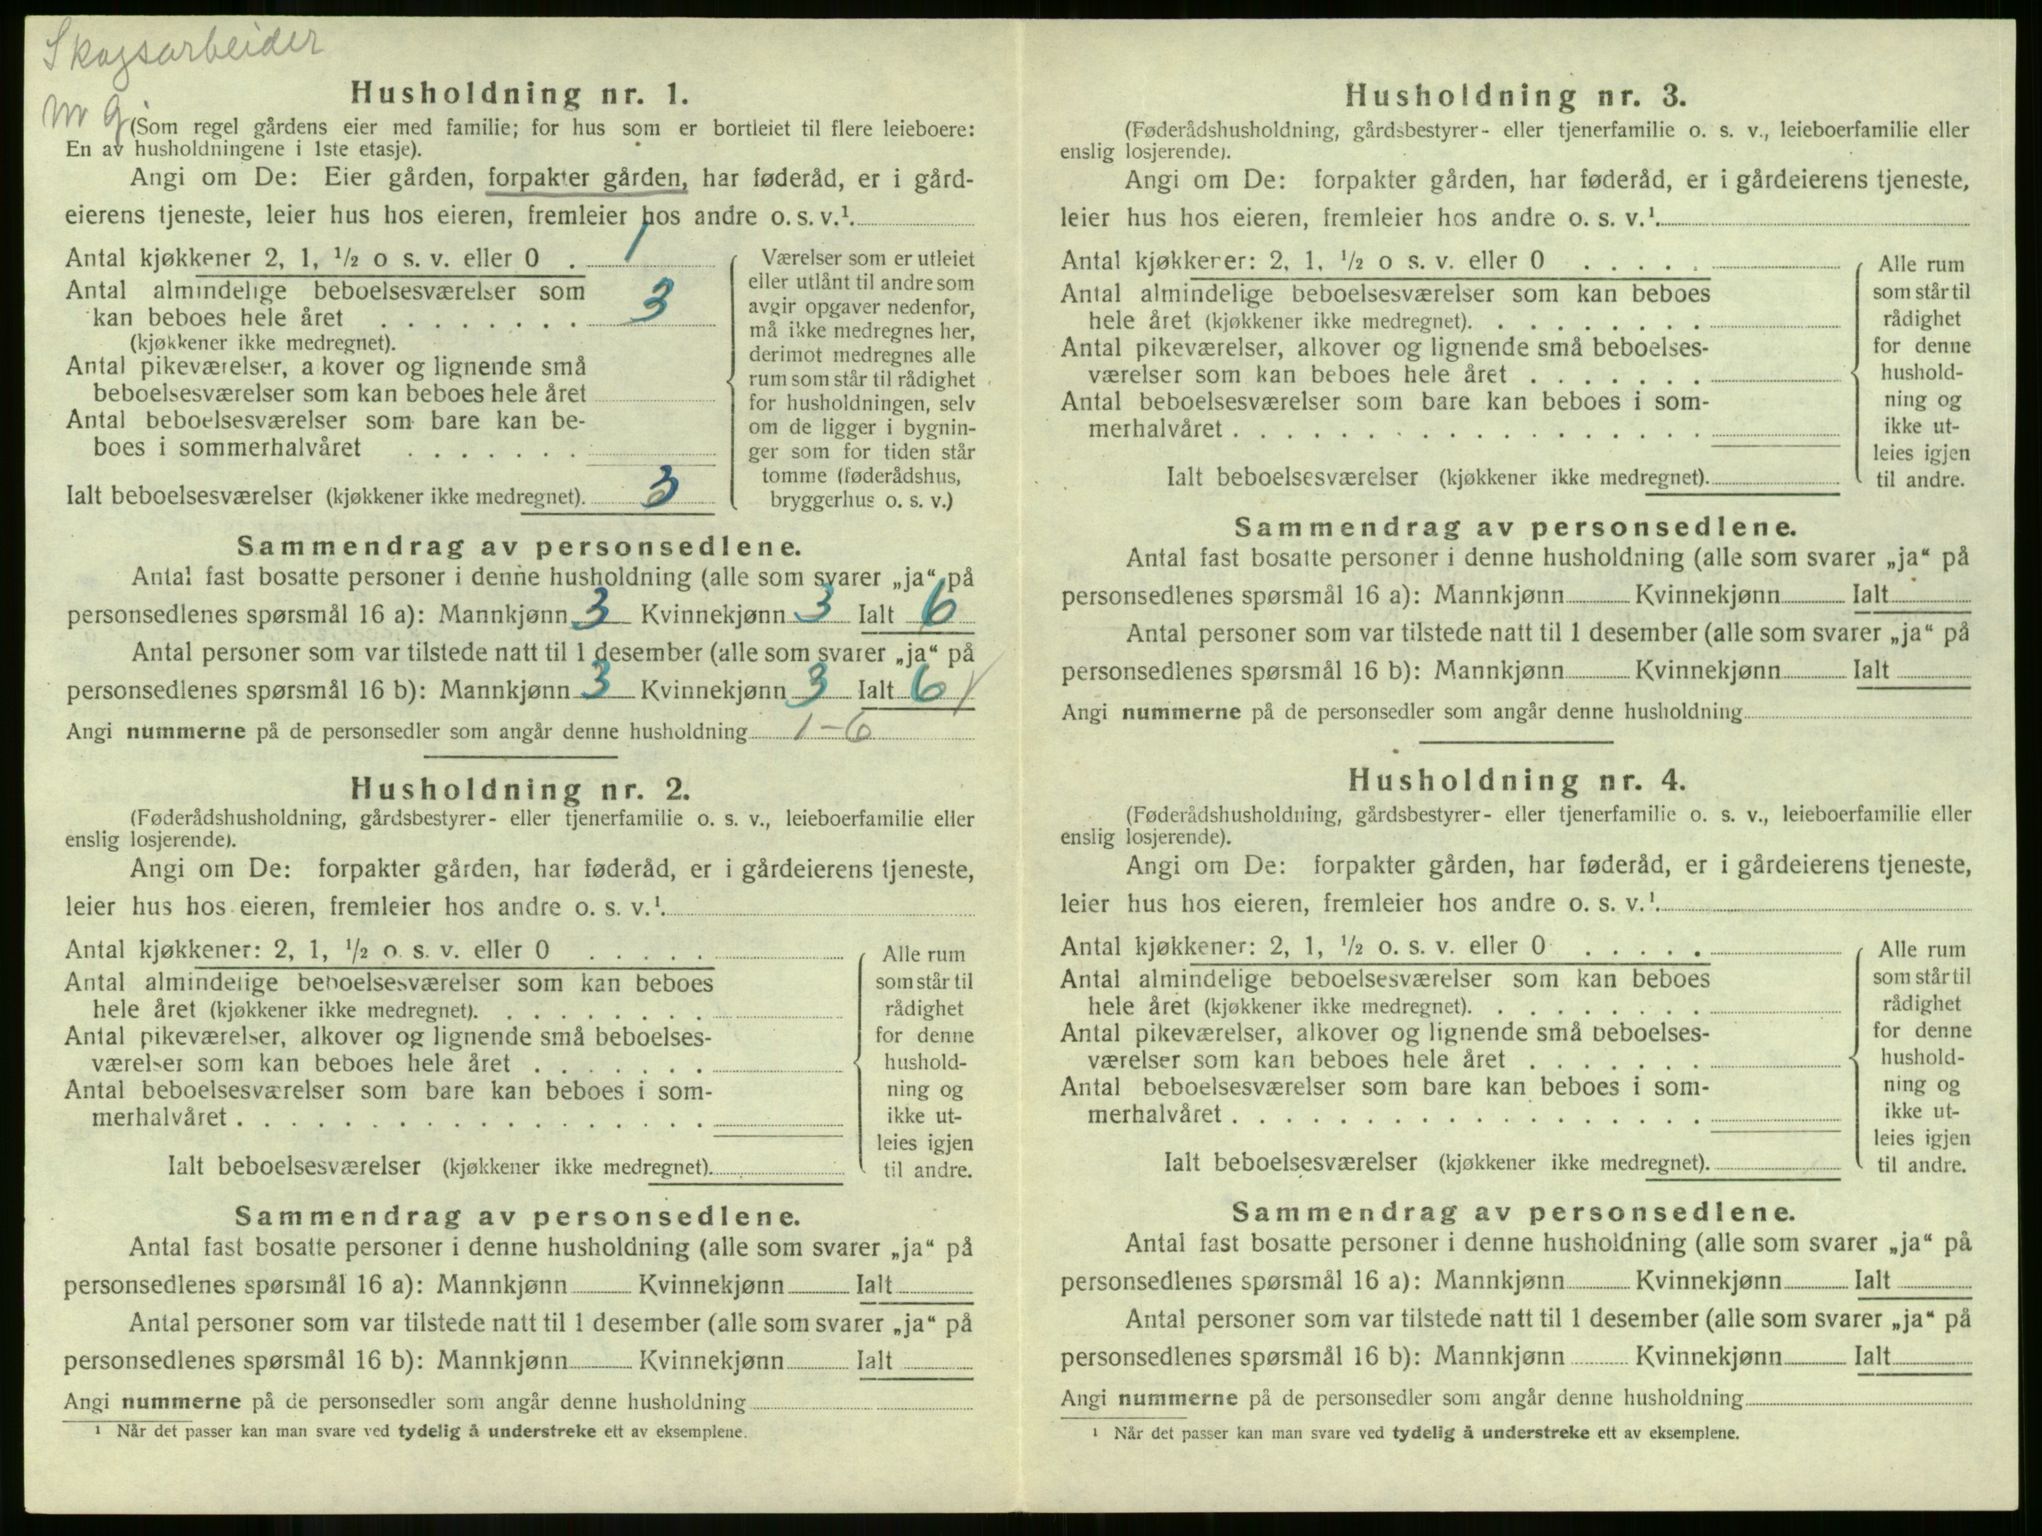 Skogsarbeider
m g
Husholdning nr. 1.
(Som regel gårdens eier med familie; for hus som er bortleiet til flere leieboere:
En av husholdningene i 1ste etasje).
Angi om De: Eier gården, forpakter gården, har føderåd, er i gård-
eierens tjeneste, leier hus hos eieren, fremleier hos andre o. s. v.¹
Antal kjøkkener 2, 1, ½ o s. v. eller 0 . 1
Antal almindelige beboelsesværelser som
kan beboes hele året . . . . . . . . 3
(kjøkkener ikke medregnet).
Antal pikeværelser, a kover og lignende små
beboelsesværelser som kan beboes hele året
Antal beboelsesværelser som bare kan be-
boes i sommerhalvåret . . . . . . .
Ialt beboelsesværelser (kjøkkener ikke medregnet). 3
Værelser som er utleiet
eller utlånt til andre som
avgir opgaver nedenfor,
må ikke medregnes her,
derimot medregnes alle
rum som står til rådighet
for husholdningen, selv
om de ligger i bygnin-
ger som for tiden står
tomme (føderådshus,
bryggerhus o. s. v.)
Sammendrag av personsedlene.
Antal fast bosatte personer i denne husholdning (alle som svarer „ja“ på
personsedlenes spørsmål 16 a): Mannkjønn 3 Kvinnekjønn 3 Ialt 6
Antal personer som var tilstede natt til 1 desember (alle som svarer „ja“ på
personsedlenes spørsmål 16 b): Mannkjønn 3 Kvinnekjønn 3 Ialt 6
Angi nummerne på de personsedler som angår denne husholdning 1-6
Husholdning nr. 2.
(Føderådshusholdning, gårdsbestyrer- eller tjenerfamilie o. s. v., leieboerfamilie eller
enslig losjerende).
Angi om De: forpakter gården, har føderåd, er i gårdeierens tjeneste,
leier hus hos eieren, fremleier hos andre o. s. v.¹
Antal kjøkkener: 2, 1, ½ o. s. v. eller 0 . . . . .
Antal almindelige beboelsesværelser som kan beboes
hele året (kjøkkener ikke medregnet). . . . . . . . .
Antal pikeværelser, alkover og lignende små beboelses-
værelser som kan beboes hele året . . . . . . .
Antal beboelsesværelser som bare kan beboes i som-
merhalvåret . . . . . . . . . . . . . . . . . .
Ialt beboelsesværelser (kjøkkener ikke medregnet).
Alle rum
som står til
rådighet
for denne
hushold-
ning og
ikke ut-
leies igjen
til andre.
Sammendrag av personsedlene.
Antal fast bosatte personer i denne husholdning (alle som svarer „ja“ på
personsedlenes spørsmål 16 a): Mannkjønn Kvinnekjønn Ialt
Antal personer som var tilstede natt til 1 desember (alle som svarer „ja“ på
personsedlenes spørsmål 16 b): Mannkjønn Kvinnekjønn Ialt
Angi nummerne på de personsedler som angår denne husholdning
¹ Når det passer kan man svare ved tydelig å understreke ett av eksemplene.
Husholdning nr. 3.
(Føderådshusholdning, gårdsbestyrer- eller tjenerfamilie o. s. v., leieboerfamilie eller
enslig losjerende).
Angi om De: forpakter gården, har føderåd, er i gårdeierens tjeneste,
leier hus hos eieren, fremleier hos andre o. s. v.¹
Antal kjøkkerer: 2, 1, ½ o s. v. eller 0 . . . . .
Antal almindelige beboelsesværelser som kan beboes
hele året (kjøkkener ikke medregnet). . . . . . . . .
Antal pikeværelser, alkover og lignende små beboelses-
værelser som kan beboes hele året . . . . . . .
Antal beboelsesværelser som bare kan beboes i som-
merhalvåret . . . . . . . . . . . . . . . . . .
Ialt beboelsesværelser (kjøkkener ikke medregnet).
Alle rum
som står til
rådighet
for denne
hushold-
ning og
ikke ut-
leies igjen
til andre.
Sammendrag av personsedlene.
Antal fast bosatte personer i denne husholdning (alle som svarer „ja“ på
personsedlenes spørsmål 16 a): Mannkjønn Kvinnekjønn Ialt
Antal personer som var tilstede natt til 1 desember (alle som svarer „ja“ på
personsedlenes spørsmål 16 b): Mannkjønn Kvinnekjønn Ialt
Angi nummerne på de personsedler som angår denne husholdning
Husholdning nr. 4.
(Føderådshusholdning, gårdsbestyrer- eller tjenerfamilie o. s. v., leieboerfamilie eller
enslig losjerende).
Angi om De: forpakter gården, har føderåd, er i gårdeierens tjeneste,
leier hus hos eieren, fremleier hos andre o. s. v.¹
Antal kjøkkener: 2, 1, ½ o. s. v. eller 0 . . . . .
Antal almindelige beboelsesværelser som kan beboes
hele året (kjøkkener ikke medregnet). . . . . . . . .
Antal pikeværelser, alkover og lignende små beboelses-
værelser som kan beboes hele året . . . . . . .
Antal beboelsesværelser som bare kan beboes i som-
merhalvåret . . . . . . . . . . . . . . . . . .
Ialt beboelsesværelser (kjøkkener ikke medregnet).
Alle rum
som står til
rådighet
for denne
hushold-
ning og
ikke ut-
leies igjen
til andre.
Sammendrag av personsedlene.
Antal fast bosatte personer i denne husholdning (alle som svarer „ja“ på
personsedlenes spørsmål 16 a): Mannkjønn Kvinnekjønn Ialt
Antal personer som var tilstede natt til 1 desember (alle som svarer „ja“ på
personsedlenes spørsmål 16 b): Mannkjønn Kvinnekjønn Ialt
Angi nummerne på de personsedler som angår denne husholdning
¹ Når det passer kan man svare ved tydelig å understreke ett av eksemplene.